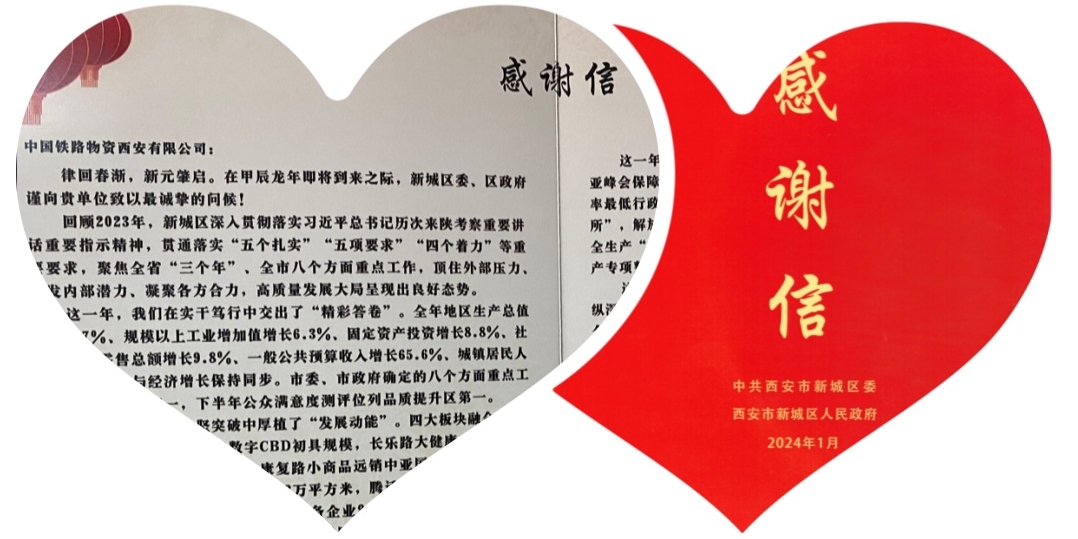 感谢信
中国铁路物资西安有限公司：
律回春渐，新元肇启。在甲辰龙年即将到来之际，新城区委、区政府
谨向贵单位致以最诚挚的问候！
回顾2023年，新城区深入贯彻落实习近平总书记历次来陕考察重要讲
话重要指示精神，贯通落实“五个扎实”“五项要求”“四个着力”等重
要求，聚焦全省“三个年”、全市八个方面重点工作，顶住外部压力、
发内部潜力、凝聚各方合力，高质量发展大局呈现出良好态势。
这一年，我们在实干笃行中交出了“精彩答卷”。全年地区生产总值
7%、规模以上工业增加值增长6.3%、固定资产投资增长8.8%、社
售总额增长9.8%、一般公共预算收入增长65.6%、城镇居民人
与经济增长保持同步。市委、市政府确定的八个方面重点工
，下半年公众满意度测评位列品质提升区第一。
突破中厚植了“发展动能”。四大板块融
数字CBD初具规模，长乐路大健康
康复路小商品远销中亚
万平方米，腾
企业
这一年
亚峰会保障
率最低行政
所”，解
全生产“
产专项
纵深
感
谢
信
中共西安市新城区委
西安市新城区人民政府
2024年1月